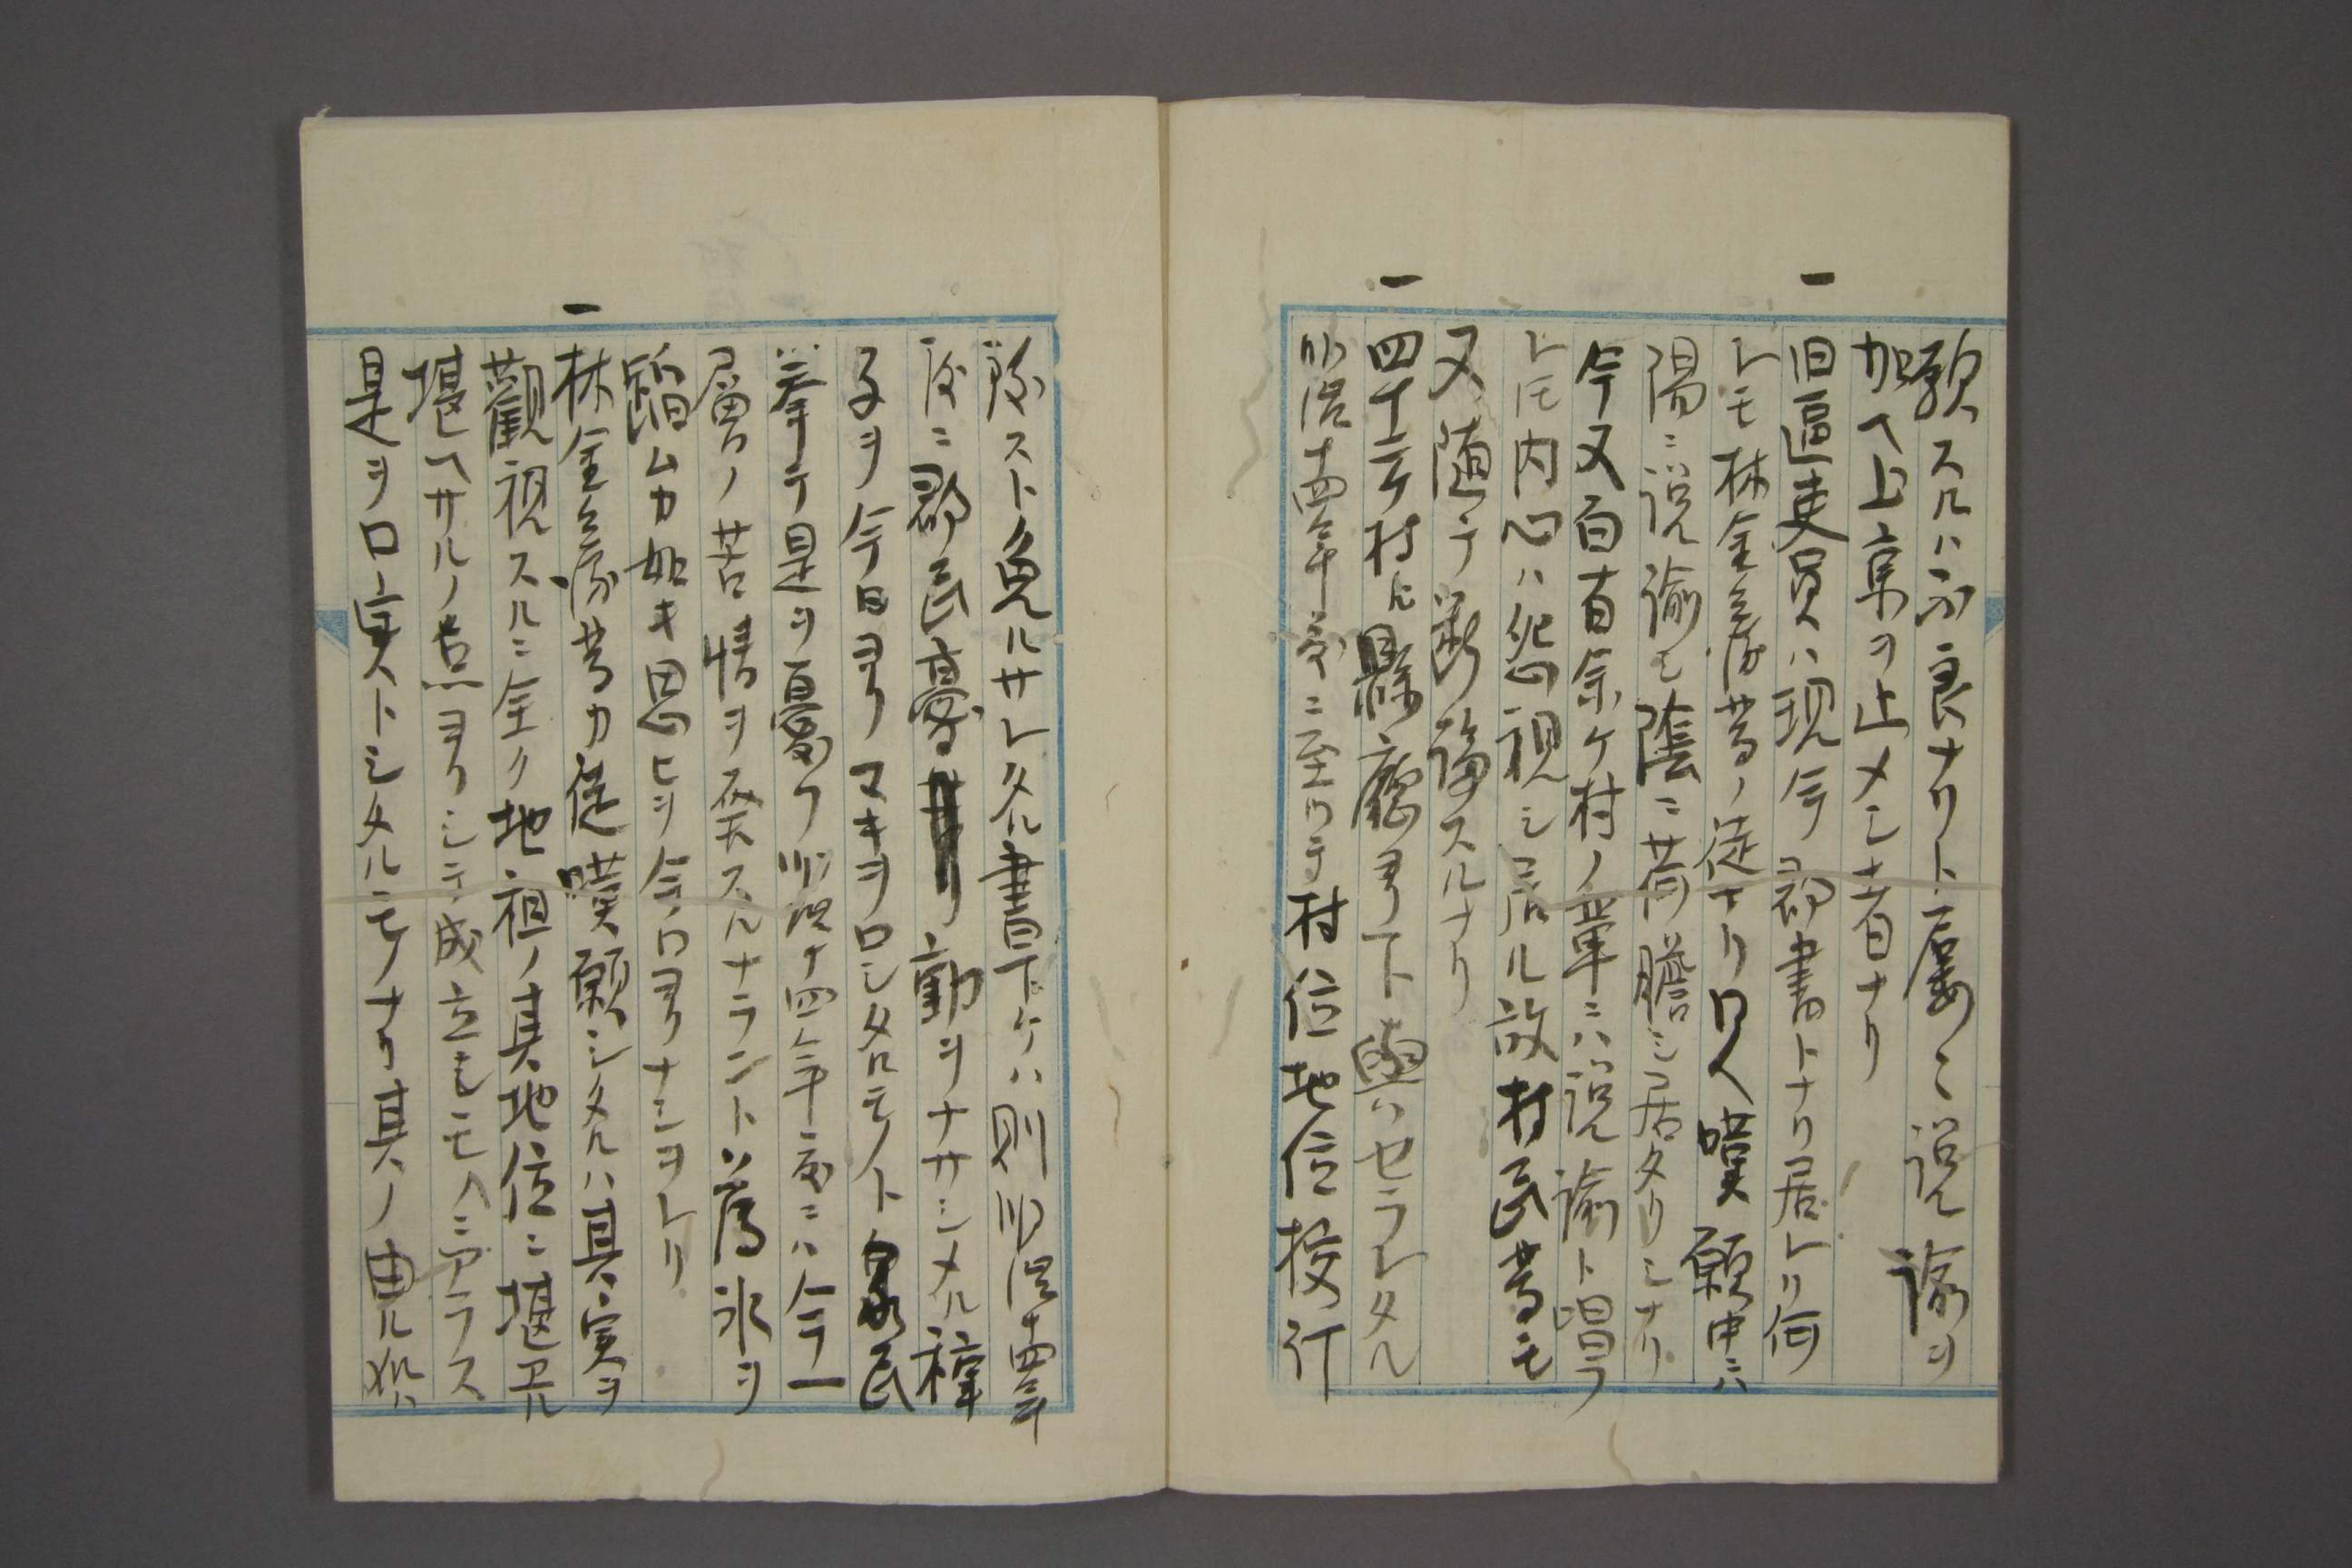 歎スルハ不良ナリト屡々説諭ヲ
加ヘ上京ヲ止メシ者ナリ
一旧區吏員ハ現今郡書トナリ居レリ何
レモ林金兵衛等ノ徒ナリ只嘆願中ニハ
陽ニ説諭シ陰ニ荷膽シ居タリシナリ
今又百有余ケ村ノ輩ニハ説諭ト唱ヲ
レ𪜈内心ハ怨視シ居ル故村民等モ
又随テ誹スルナリ
一四十三ケ村ヘ縣廳ヨリ下與ハセラレタル
明治十四年度ニ至リテ村位地位按行
スト免ルサレタル書下ケハ則明治十四年
度ニ郡民憂ヲナサシメル種
子ヲ今日ヨリマキヲロシタルモノト衆民
挙テ是ヲ憂フ明治十四年度ニハ今一
層ノ苦情ヲ発スルナラント薄氷ヲ
踏ムカ如キ思ヒヲ今日ヨリナシヲレリ
一林金兵衛等カ徒嘆願シタルハ其実ヲ
観視スルニ全ク地租ノ其地位ニ堪ユル
堪ヘサルノ点ヨリシテ成立シモノニアラス
是ヲ口実トシタルモノナリ其ノ由ル処ハ